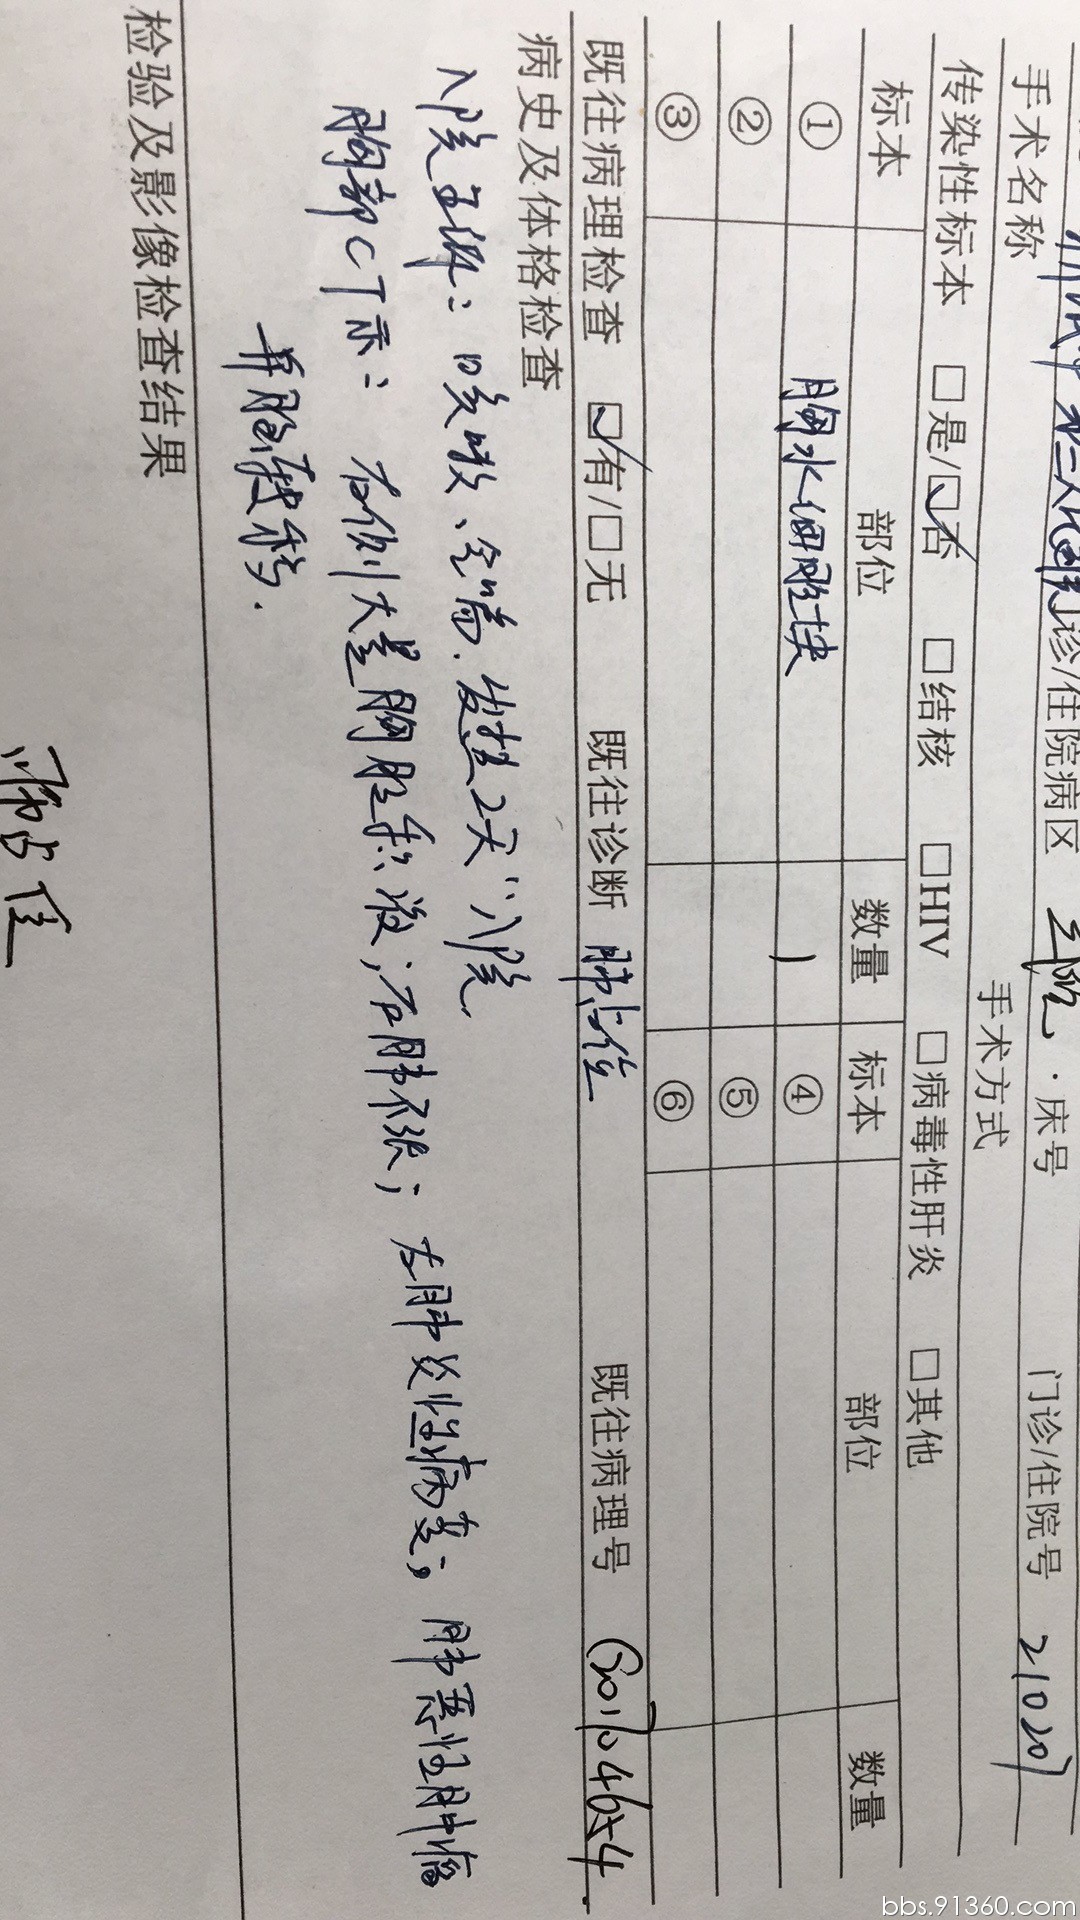 三人民医院门诊/住院病区 三院 · 床号 门诊/住院号 21020
手术名称 手术方式
传染性标本 □是/☑否 □结核 □HIV □病毒性肝炎 □其他
标本 部位 数量 标本 部位 数量
① 胸水细胞块 1 ④
② ⑤
③ ⑥
既往病理检查 ☑有/□无 既往诊断 肺占位 既往病理号
病史及体格检查
入院主诉：咳嗽、气喘、发热2天"入院
胸部CT示：右侧大量胸腔积液；右肺不张；左肺炎性病变；肺恶性肿瘤
并胸转移.
检验及影像检查结果
bbs.91360.com